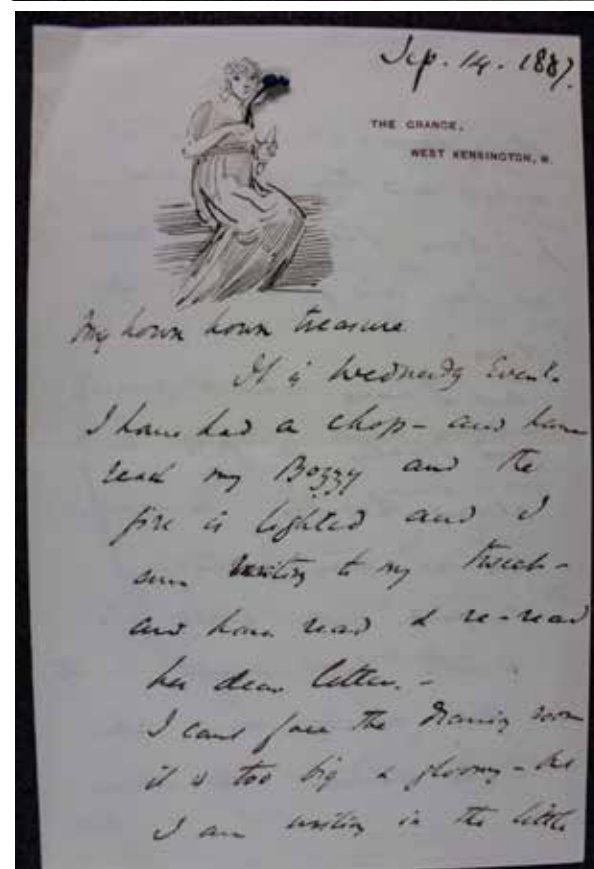 Sep. 14. 1887.
THE GRANGE,
WEST KENSINGTON, W.
My hown hown treasure
It is Wednesdy Evenì.
I have had a chop – and have
read my Bozzy and the
fire is lighted and I
am writing to my –
and have read & re-read
her dear letter. –
I cant face the drawing room
it is too big & gloomy –
I am writing in the little